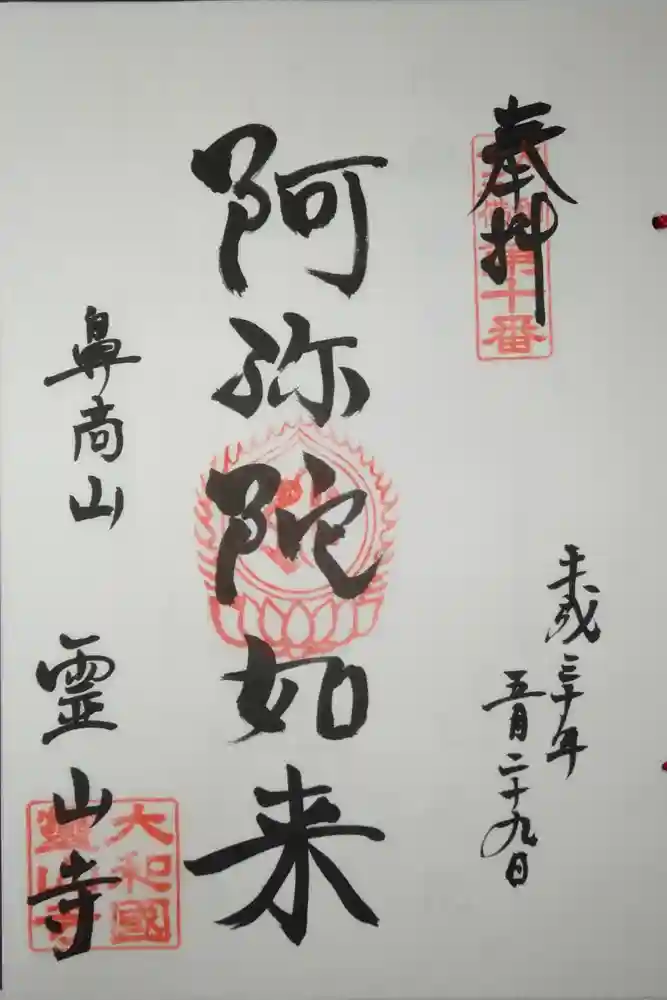 奉拝
第十番
平成三十年
五月二十九日
阿弥陀如来
鼻高山
霊山寺
大和國
霊山寺